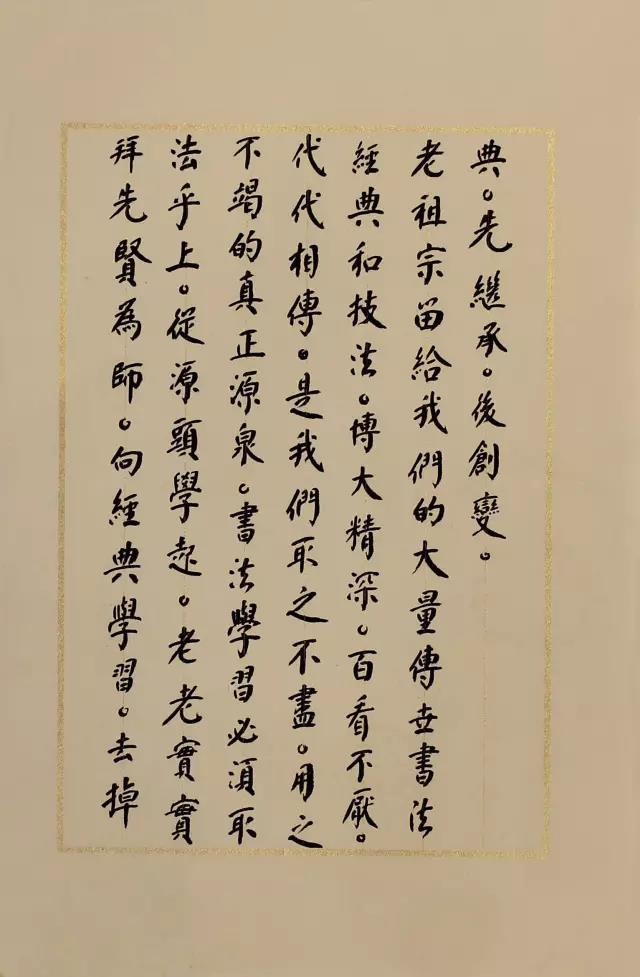 典。先継承。後創變。
老祖宗留給我們的大量傳世書法
經典和技法。博大精深。百看不厭。
代代相傳。是我們取之不盡。用之
不竭的真正源泉。書法學習必須取
法乎上。從源頭學起。老老實實
拜先賢為師。向經典學習。去掉